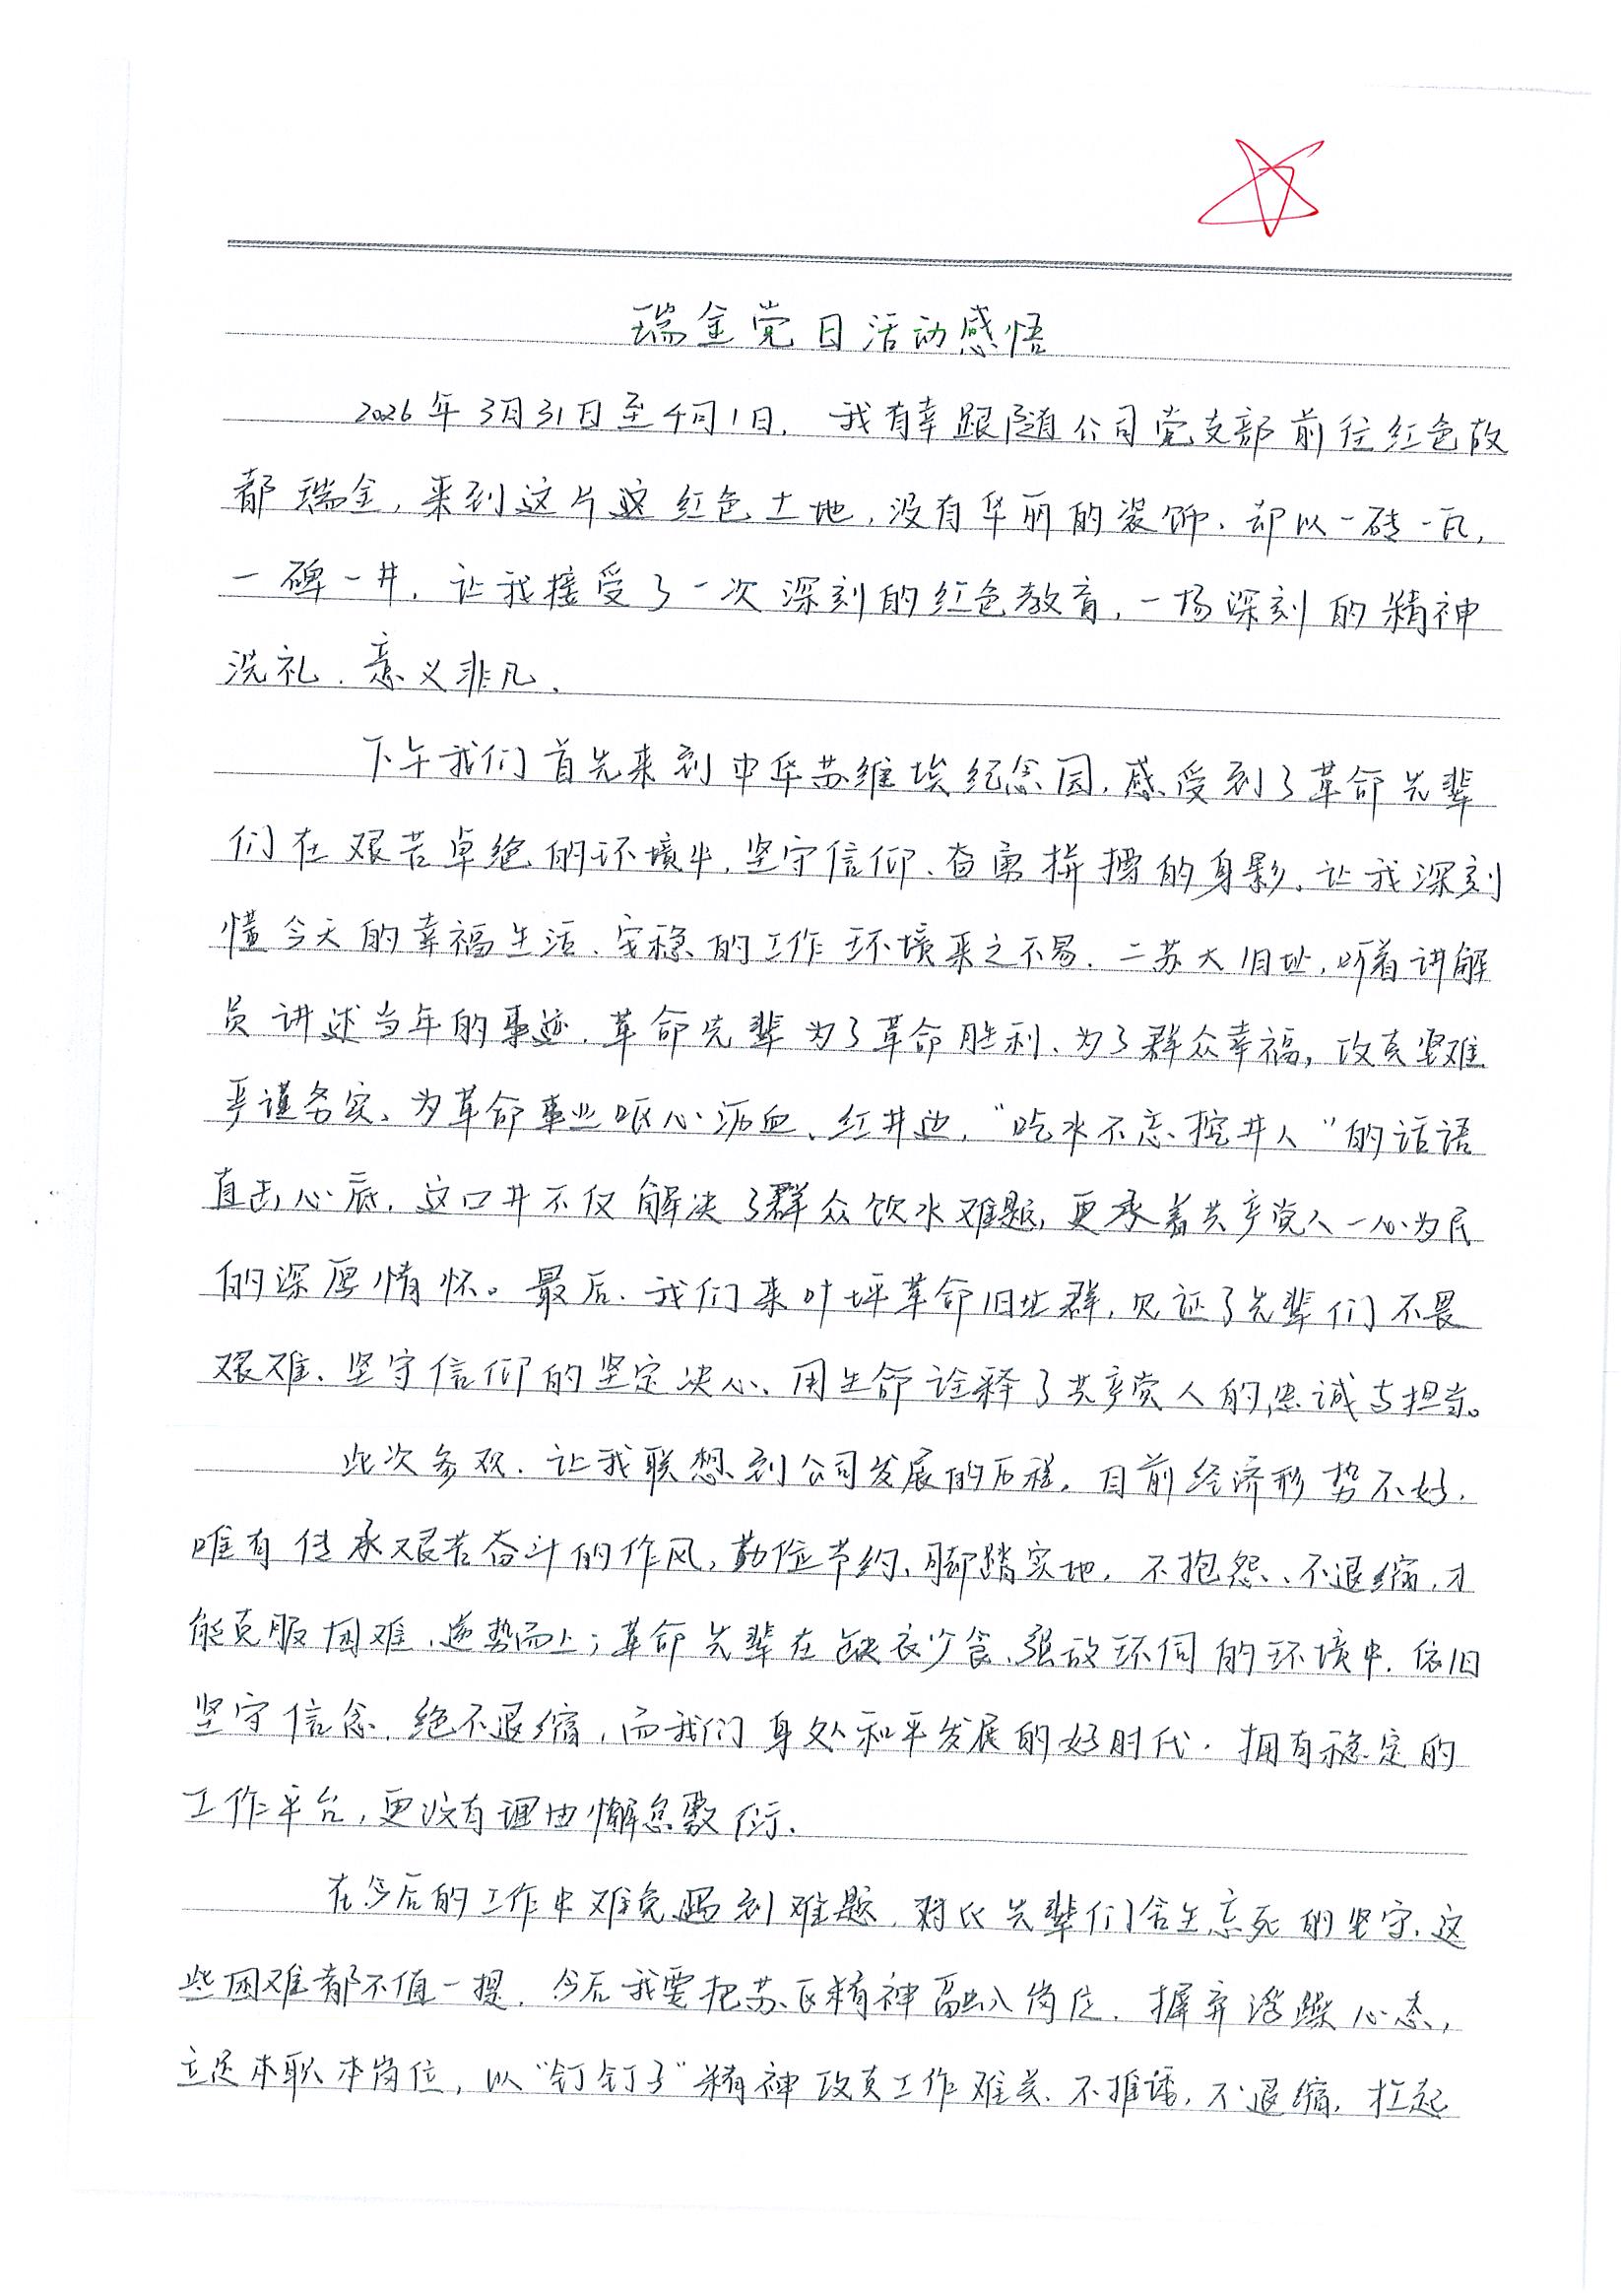 瑞金党日活动感悟
2026年3月31日至4月1日，我有幸跟随公司党支部前往红色故
都瑞金，来到这片这红色土地，没有华丽的装饰，却以一砖一瓦，
一碑一井，让我接受了一次深刻的红色教育，一场深刻的精神
洗礼，意义非凡、
下午我们首先来到中华苏维埃纪念园，感受到了革命先辈
们在艰苦卓绝的环境中，坚守信仰、奋勇拼搏的身影，让我深刻
懂今天的幸福生活、安稳的工作环境来之不易．二苏大旧址，听着讲解
员讲述当年的事迹，革命先辈为了革命胜利、为了群众幸福，攻克坚难
严谨务实、为革命事业呕心沥血、红井边，“吃水不忘挖井人”的话语
直击心底，这口井不仅解决了群众饮水难题，更承着共产党人一心为民
的深厚情怀。最后、我们来叶坪革命旧址群，见证了先辈们不畏
艰难、坚守信仰的坚定决心、用生命诠释了共产党人的忠诚与担当。
此次参观，让我联想到公司发展的历程，目前经济形势不好，
唯有传承艰苦奋斗的作风，勤俭节约、脚踏实地，不抱怨、不退缩，才
能克服困难、逆势而上；革命先辈在缺衣少食、强敌环伺的环境中，依旧
坚守信念，绝不退缩，而我们身处和平发展的好时代，拥有稳定的
工作平台，更没有理由懈怠敷衍、
在今后的工作中难免遇到难题，对比先辈们舍生忘死的坚守，这
些困难都不值一提，今后我要把苏区精神融入岗位，摒弃浮躁心态，
立足本职本岗位，以“钉钉子”精神攻克工作难关、不推诿，不退缩，扛起